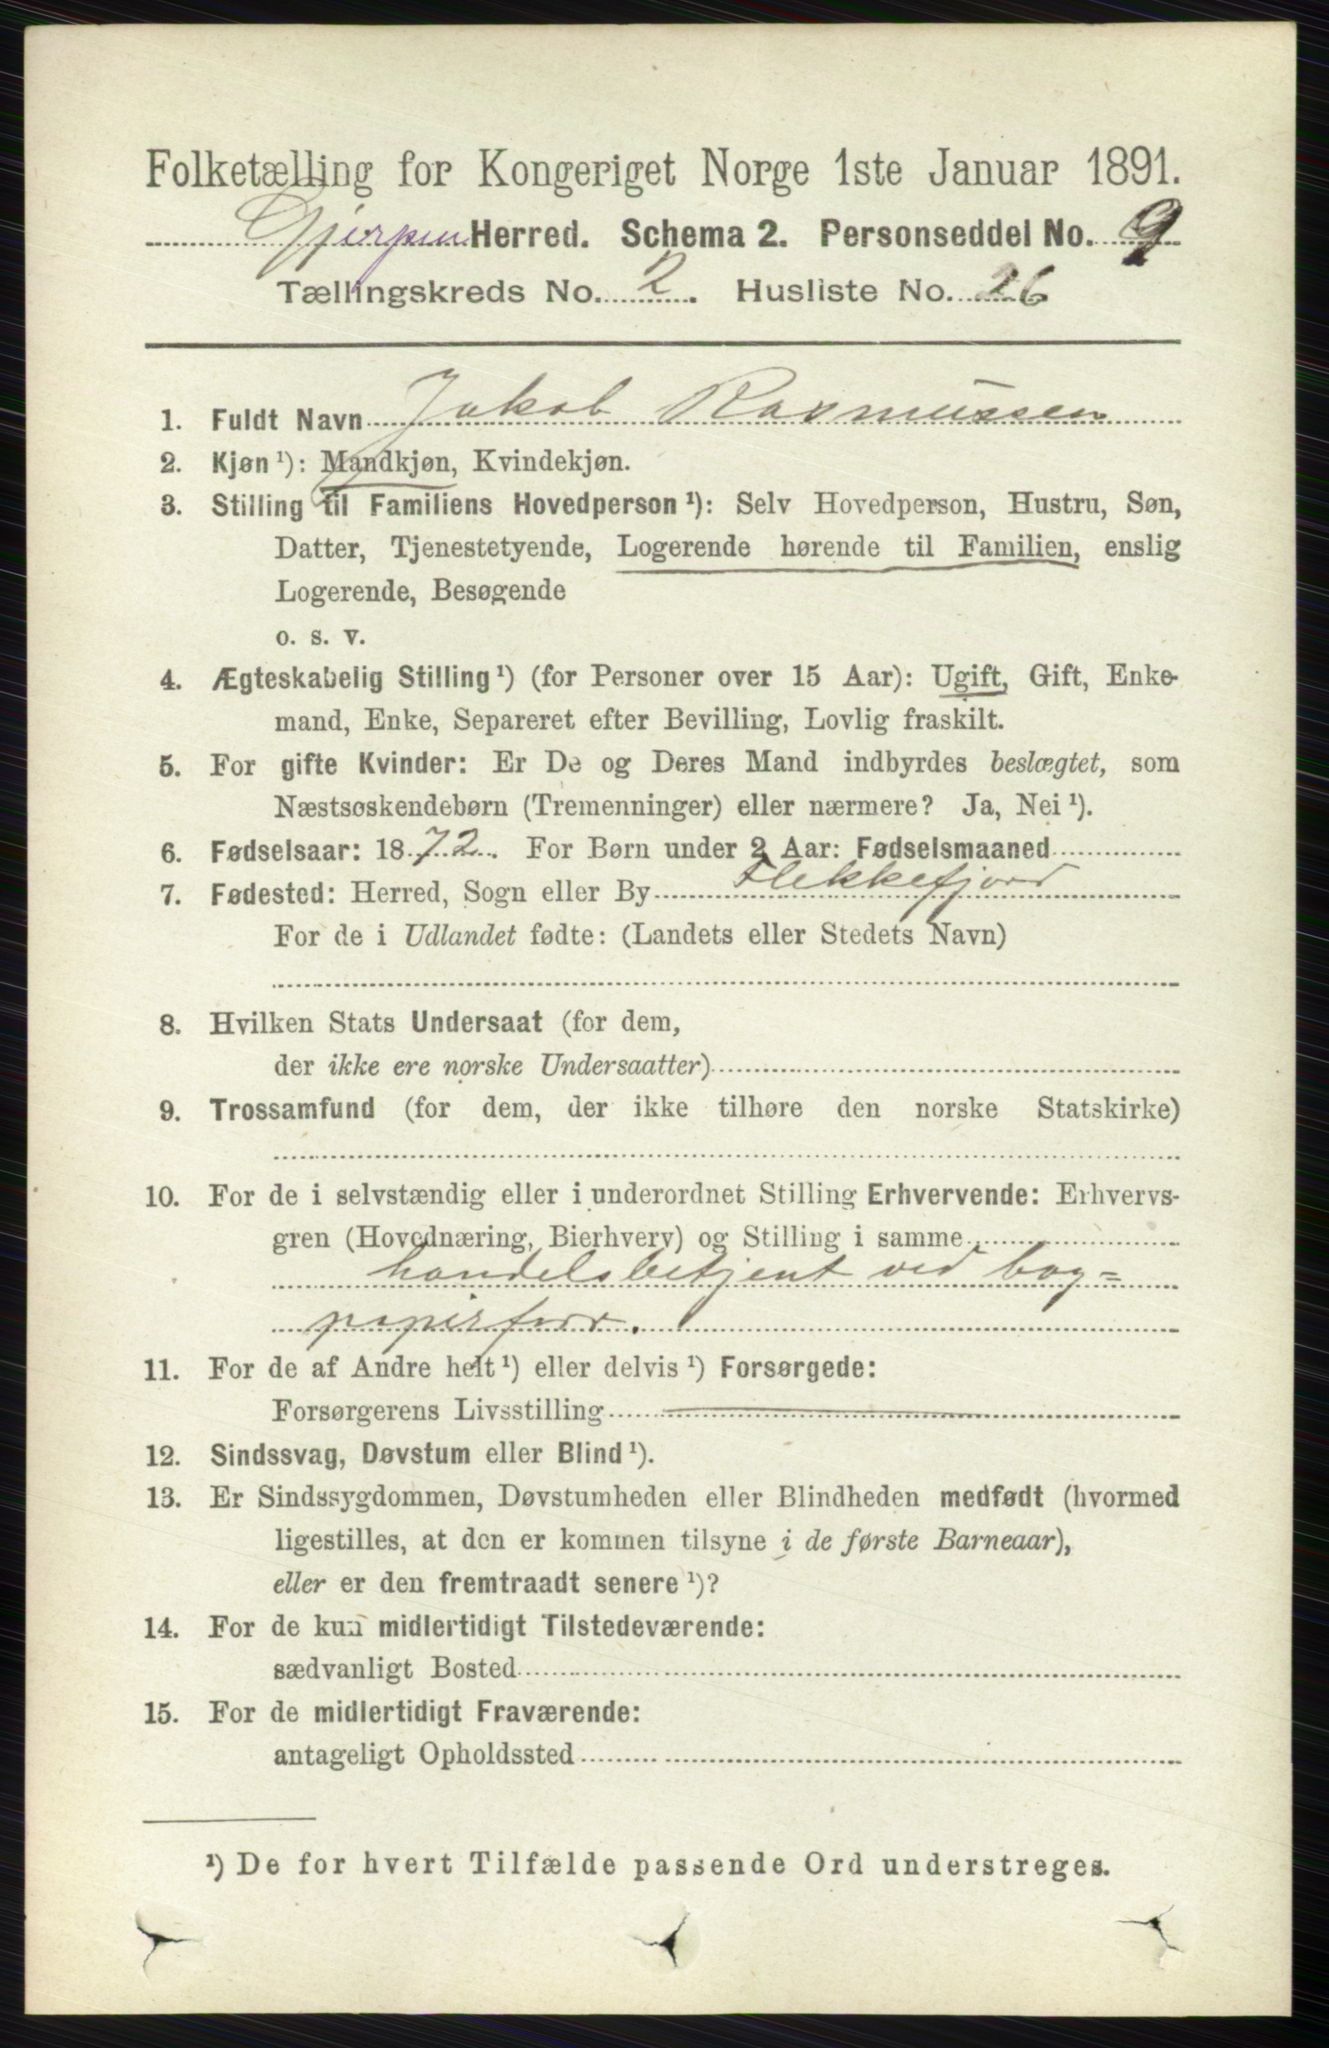 Folketælling for Kongeriget Norge 1ste Januar 1891.
Gjerpen Herred. Schema 2. Personseddel No. 9
Tællingskreds No. 2. Husliste No. 26
1. Fuldt Navn Jakob Rasmussen
2. Kjøn ¹): Mandkjøn, Kvindekjøn.
3. Stilling til Familiens Hovedperson ¹): Selv Hovedperson, Hustru, Søn,
Datter, Tjenestetyende, Logerende hørende til Familien, enslig
Logerende, Besøgende
o. s. v.
4. Ægteskabelig Stilling ¹) (for Personer over 15 Aar): Ugift, Gift, Enke-
mand, Enke, Separeret efter Bevilling, Lovlig fraskilt.
5. For gifte Kvinder: Er De og Deres Mand indbyrdes beslægtet, som
Næstsøskendebørn (Tremenninger) eller nærmere? Ja, Nei ¹).
6. Fødselsaar: 1872. For Børn under 2 Aar: Fødselsmaaned
7. Fødested: Herred, Sogn eller By Flekkefjord
For de i Udlandet fødte: (Landets eller Stedets Navn)
8. Hvilken Stats Undersaat (for dem,
der ikke ere norske Undersaatter)
9. Trossamfund (for dem, der ikke tilhøre den norske Statskirke)
10. For de i selvstændig eller i underordnet Stilling Erhvervende: Erhvervs-
gren (Hovednæring, Bierhverv) og Stilling i samme
handelsbetjent ved bog=
papirforr.
11. For de af Andre helt ¹) eller delvis ¹) Forsørgede:
Forsørgerens Livsstilling
12. Sindssvag, Døvstum eller Blind ¹).
13. Er Sindssygdommen, Døvstumheden eller Blindheden medfødt (hvormed
ligestilles, at den er kommen tilsyne i de første Barneaar),
eller er den fremtraadt senere ¹)?
14. For de kun midlertidigt Tilstedeværende:
sædvanligt Bosted
15. For de midlertidigt Fraværende:
antageligt Opholdssted
¹) De for hvert Tilfælde passende Ord understreges.